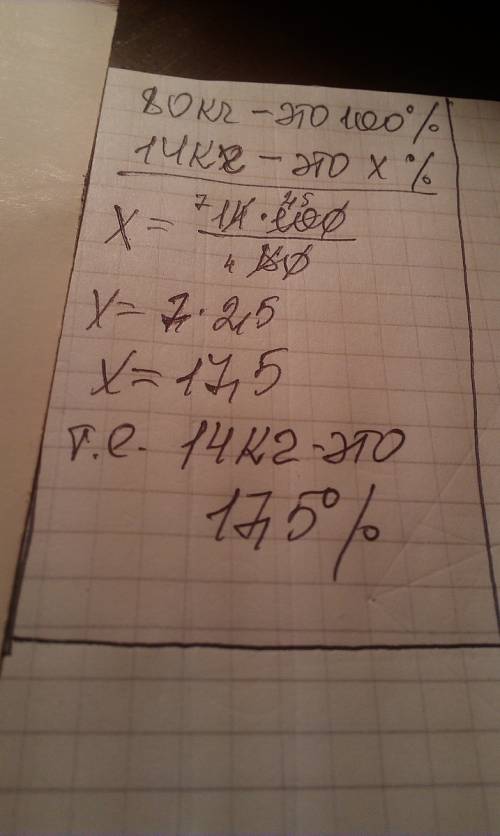 80кг - это 100%
14кг - это x%
x = 14 · 100 / 80
7 2,5
4
x = 7 · 2,5
x = 17,5
т.е. 14кг - это
17,5%